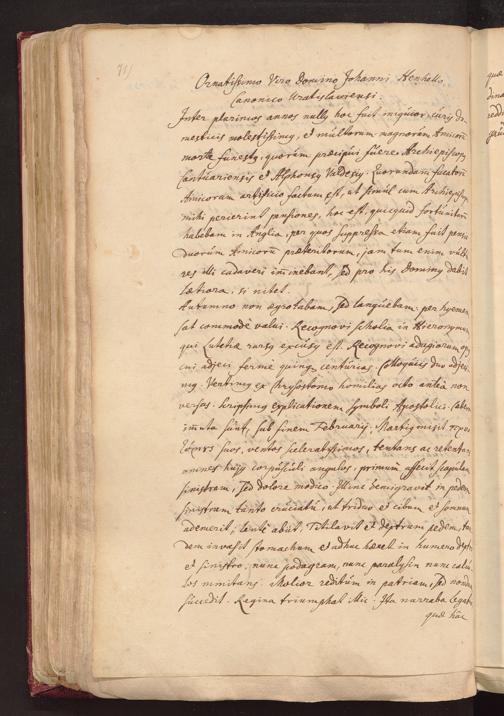 71)
Ornatissimo Viro Domino Johanni Henkello
Canonico Uratislaviensi.
Inter plurimos annos nullus hoc fuit iniquior, curis do-
mesticis molestissimus, et multorum magnorum Amicorum
morte funestus, quorum praecipui fuere Archiepiscopus
Cantuariensis et Alphonsus Valdesius. Quorundam fucatorum
Amicorum artificio factum est, ut simul cum Archiepiscopo
mihi perierint pensiones, hoc est, quicquid fortunarum
habebam in Anglia, per quos suppressa etiam fuit pensio
duorum Amicorum praeteritorum, jam tum enim vultu-
res illi cadaveri imminebant, sed pro his Dominus dabit
laetiora, si
Autumno non aegrotabam, sed languebam: per hyemem
sat commode valui. Recognovi scholia in Hieronymum
qui Lutetiae rursus excusus est. Recognovi adagiorum opus
cui adjeci ferme quinque centurias. Colloquiis duo adjeci-
mus. Vertimus ex Chrysostomo homilias octo antea non
versas. Scripsimus explicationem Symboli Apostolici. Caetera
immutata sunt, sub finem Februarij. Martius misit
suos, ventos sceleratissimos, tentans ac retentans
omnes hujus corpusculi angulos, primum affecit scapulam
sinistram, sed dolore modico. Illinc demigravit in pedem
sinistrum tanto cruciatu, ut triduo et cibum et somnum
ademerit; lente abiit. Titilavit et dextrum pedem, tan-
dem invasit stomachum et adhuc haeret in humero dextro
et sinistro: nunc podagram, nunc paralysin nunc calcu-
los minitans. Molior reditum in patriam, sed nondum
succedit. Regina triumphat illic. Ita narrabat legatus
quae hac